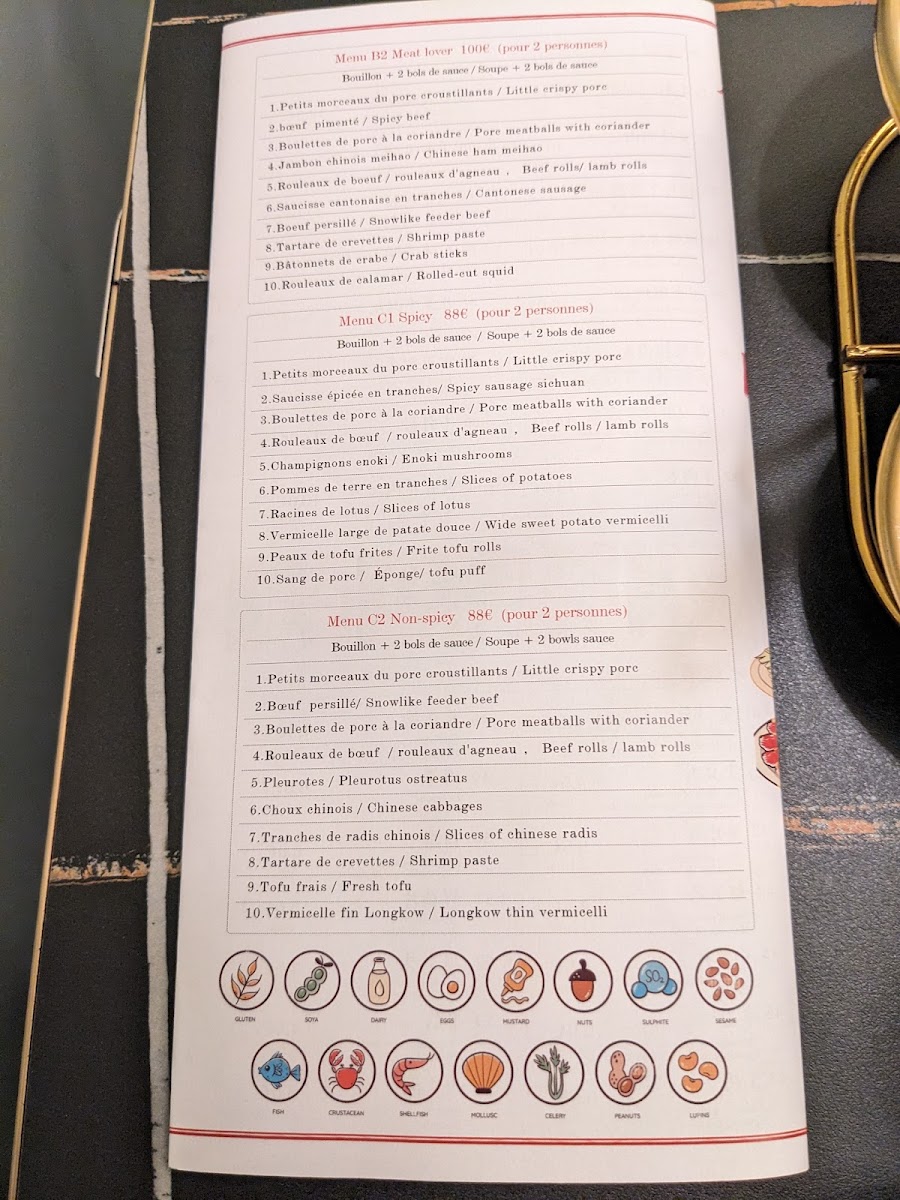 Menu B2 Meat lover 100€ (pour 2 personnes)
Bouillon + 2 bols de sauce / Soupe + 2 bols de sauce
1.Petits morceaux du porc croustillants / Little crispy porc
2.bœuf pimenté / Spicy beef
3.Boulettes de porc à la coriandre / Porc meatballs with coriander
4.Jambon chinois meihao / Chinese ham meihao
5.Rouleaux de boeuf / rouleaux d'agneau , Beef rolls/ lamb rolls
6.Saucisse cantonaise en tranches / Cantonese sausage
7.Boeuf persillé / Snowlike feeder beef
8.Tartare de crevettes / Shrimp paste
9.Bâtonnets de crabe / Crab sticks
10.Rouleaux de calamar / Rolled-cut squid
Menu C1 Spicy 88€ (pour 2 personnes)
Bouillon + 2 bols de sauce / Soupe + 2 bols de sauce
1.Petits morceaux du porc croustillants / Little crispy porc
2.Saucisse épicée en tranches/ Spicy sausage sichuan
3.Boulettes de porc à la coriandre / Porc meatballs with coriander
4.Rouleaux de bœuf / rouleaux d'agneau , Beef rolls / lamb rolls
5.Champignons enoki / Enoki mushrooms
6.Pommes de terre en tranches / Slices of potatoes
7.Racines de lotus / Slices of lotus
8.Vermicelle large de patate douce / Wide sweet potato vermicelli
9.Peaux de tofu frites / Frite tofu rolls
10.Sang de porc / Éponge/ tofu puff
Menu C2 Non-spicy 88€ (pour 2 personnes)
Bouillon + 2 bols de sauce / Soupe + 2 bowls sauce
1.Petits morceaux du porc croustillants / Little crispy porc
2.Bœuf persillé/ Snowlike feeder beef
3.Boulettes de porc à la coriandre / Porc meatballs with coriander
4.Rouleaux de bœuf / rouleaux d'agneau , Beef rolls / lamb rolls
5.Pleurotes / Pleurotus ostreatus
6.Choux chinois / Chinese cabbages
7.Tranches de radis chinois / Slices of chinese radis
8.Tartare de crevettes / Shrimp paste
9.Tofu frais / Fresh tofu
10.Vermicelle fin Longkow / Longkow thin vermicelli
SO₂
GLUTEN SOYA DAIRY EGGS MUSTARD NUTS SULPHITE SESAME
FISH CRUSTACEAN SHELLFISH MOLLUSC CELERY PEANUTS LUPINS